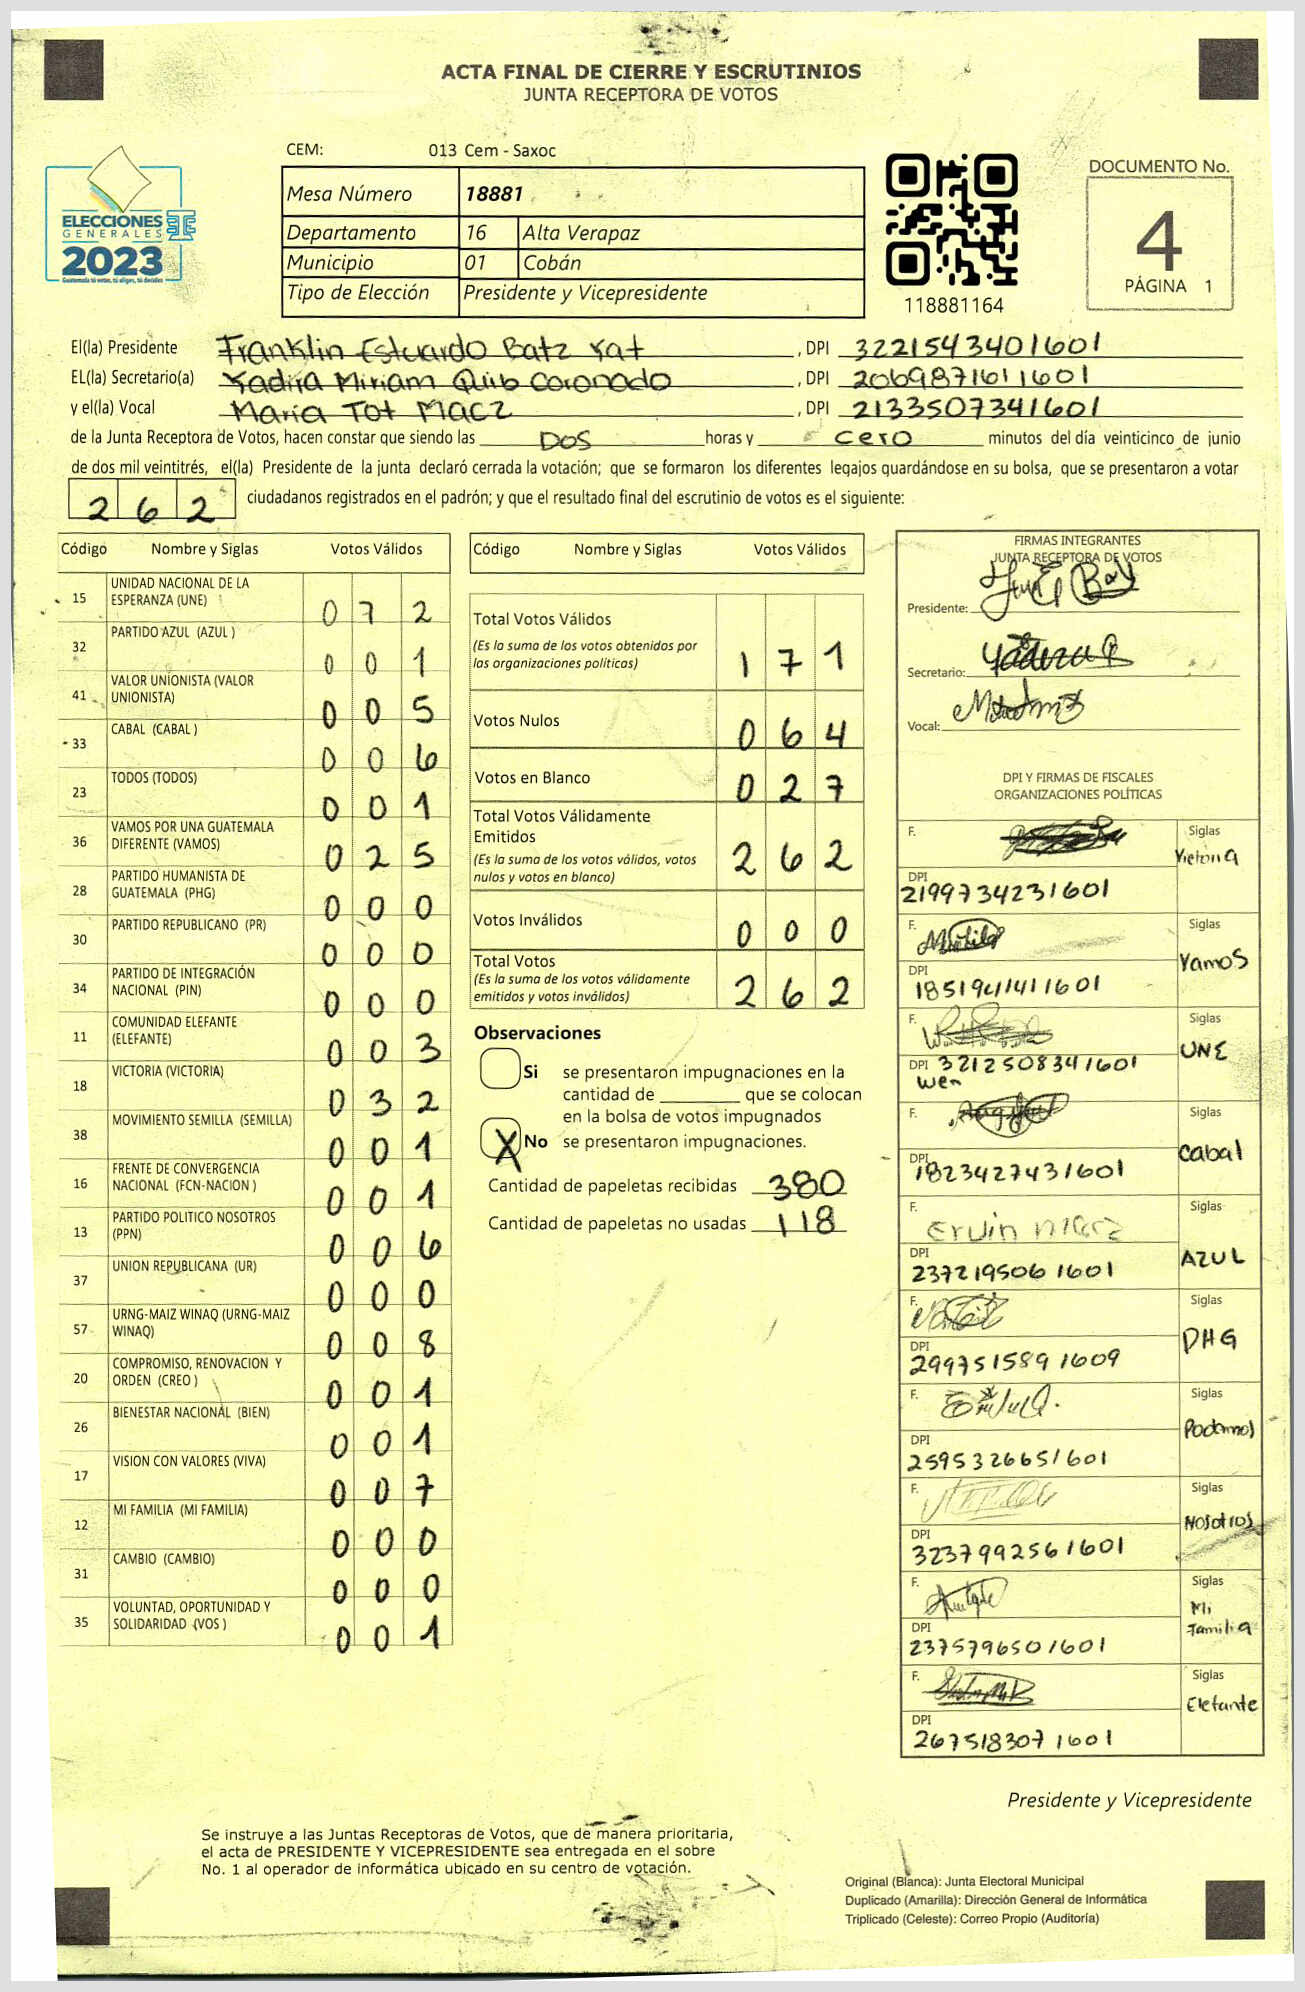 ACTA FINAL DE CIERRE Y ESCRUTINIOS
JUNTA RECEPTORA DE VOTOS
CEM: 013 Cem - Saxoc
Mesa Número 18881
Departamento 16 Alta Verapaz
Municipio 01 Cobán
Tipo de Elección Presidente y Vicepresidente
ELECCIONES
GENERALES
2023
Guatemala tú votas, tú eliges, tú decides
118881164
DOCUMENTO No.
4
PÁGINA 1
El(la) Presidente Franklin Estuardo Batz Xat , DPI 3221543401601
EL(la) Secretario(a) Yadira Miriam Quib Coronado , DPI 2069871611601
y el(la) Vocal Maria Tot Macz , DPI 2133507341601
de la Junta Receptora de Votos, hacen constar que siendo las Dos horas y cero minutos del día veinticinco de junio
de dos mil veintitrés, el(la) Presidente de la junta declaró cerrada la votación; que se formaron los diferentes legajos guardándose en su bolsa, que se presentaron a votar
262 ciudadanos registrados en el padrón; y que el resultado final del escrutinio de votos es el siguiente:
Código Nombre y Siglas Votos Válidos
15 UNIDAD NACIONAL DE LA ESPERANZA (UNE) 072
32 PARTIDO AZUL (AZUL ) 001
41 VALOR UNIONISTA (VALOR UNIONISTA) 005
33 CABAL (CABAL ) 006
23 TODOS (TODOS) 001
36 VAMOS POR UNA GUATEMALA DIFERENTE (VAMOS) 025
28 PARTIDO HUMANISTA DE GUATEMALA (PHG) 000
30 PARTIDO REPUBLICANO (PR) 000
34 PARTIDO DE INTEGRACIÓN NACIONAL (PIN) 000
11 COMUNIDAD ELEFANTE (ELEFANTE) 003
18 VICTORIA (VICTORIA) 032
38 MOVIMIENTO SEMILLA (SEMILLA) 001
16 FRENTE DE CONVERGENCIA NACIONAL (FCN-NACION ) 001
13 PARTIDO POLITICO NOSOTROS (PPN) 006
37 UNION REPUBLICANA (UR) 000
57 URNG-MAIZ WINAQ (URNG-MAIZ WINAQ) 008
20 COMPROMISO, RENOVACION Y ORDEN (CREO ) 001
26 BIENESTAR NACIONAL (BIEN) 001
17 VISION CON VALORES (VIVA) 007
12 MI FAMILIA (MI FAMILIA) 000
31 CAMBIO (CAMBIO) 000
35 VOLUNTAD, OPORTUNIDAD Y SOLIDARIDAD (VOS ) 001
Código Nombre y Siglas Votos Válidos
Total Votos Válidos
(Es la suma de los votos obtenidos por las organizaciones políticas) 171
Votos Nulos 064
Votos en Blanco 027
Total Votos Válidamente Emitidos
(Es la suma de los votos válidos, votos nulos y votos en blanco) 262
Votos Inválidos 000
Total Votos
(Es la suma de los votos válidamente emitidos y votos inválidos) 262
Observaciones
Si se presentaron impugnaciones en la
cantidad de ________ que se colocan
en la bolsa de votos impugnados
X No se presentaron impugnaciones.
Cantidad de papeletas recibidas 380
Cantidad de papeletas no usadas 118
FIRMAS INTEGRANTES
JUNTA RECEPTORA DE VOTOS
Presidente:
Secretario:
Vocal:
DPI Y FIRMAS DE FISCALES
ORGANIZACIONES POLÍTICAS
F. Siglas Victoria
DPI 2199734231601
F. Siglas Vamos
DPI 1851941411601
F. Siglas UNE
DPI 3212508341601
Wen
F. Siglas Cabal
DPI 1823427431601
F. Ervin Macz Siglas AZUL
DPI 2372195061601
F. Siglas PHG
DPI 2997515891609
F. Siglas Podemos
DPI 2595326651601
F. Siglas Nosotros
DPI 3237992561601
F. Siglas Mi Familia
DPI 2375796501601
F. Siglas Elefante
DPI 2675183071601
Presidente y Vicepresidente
Se instruye a las Juntas Receptoras de Votos, que de manera prioritaria,
el acta de PRESIDENTE Y VICEPRESIDENTE sea entregada en el sobre
No. 1 al operador de informática ubicado en su centro de votación.
Original (Blanca): Junta Electoral Municipal
Duplicado (Amarilla): Dirección General de Informática
Triplicado (Celeste): Correo Propio (Auditoría)